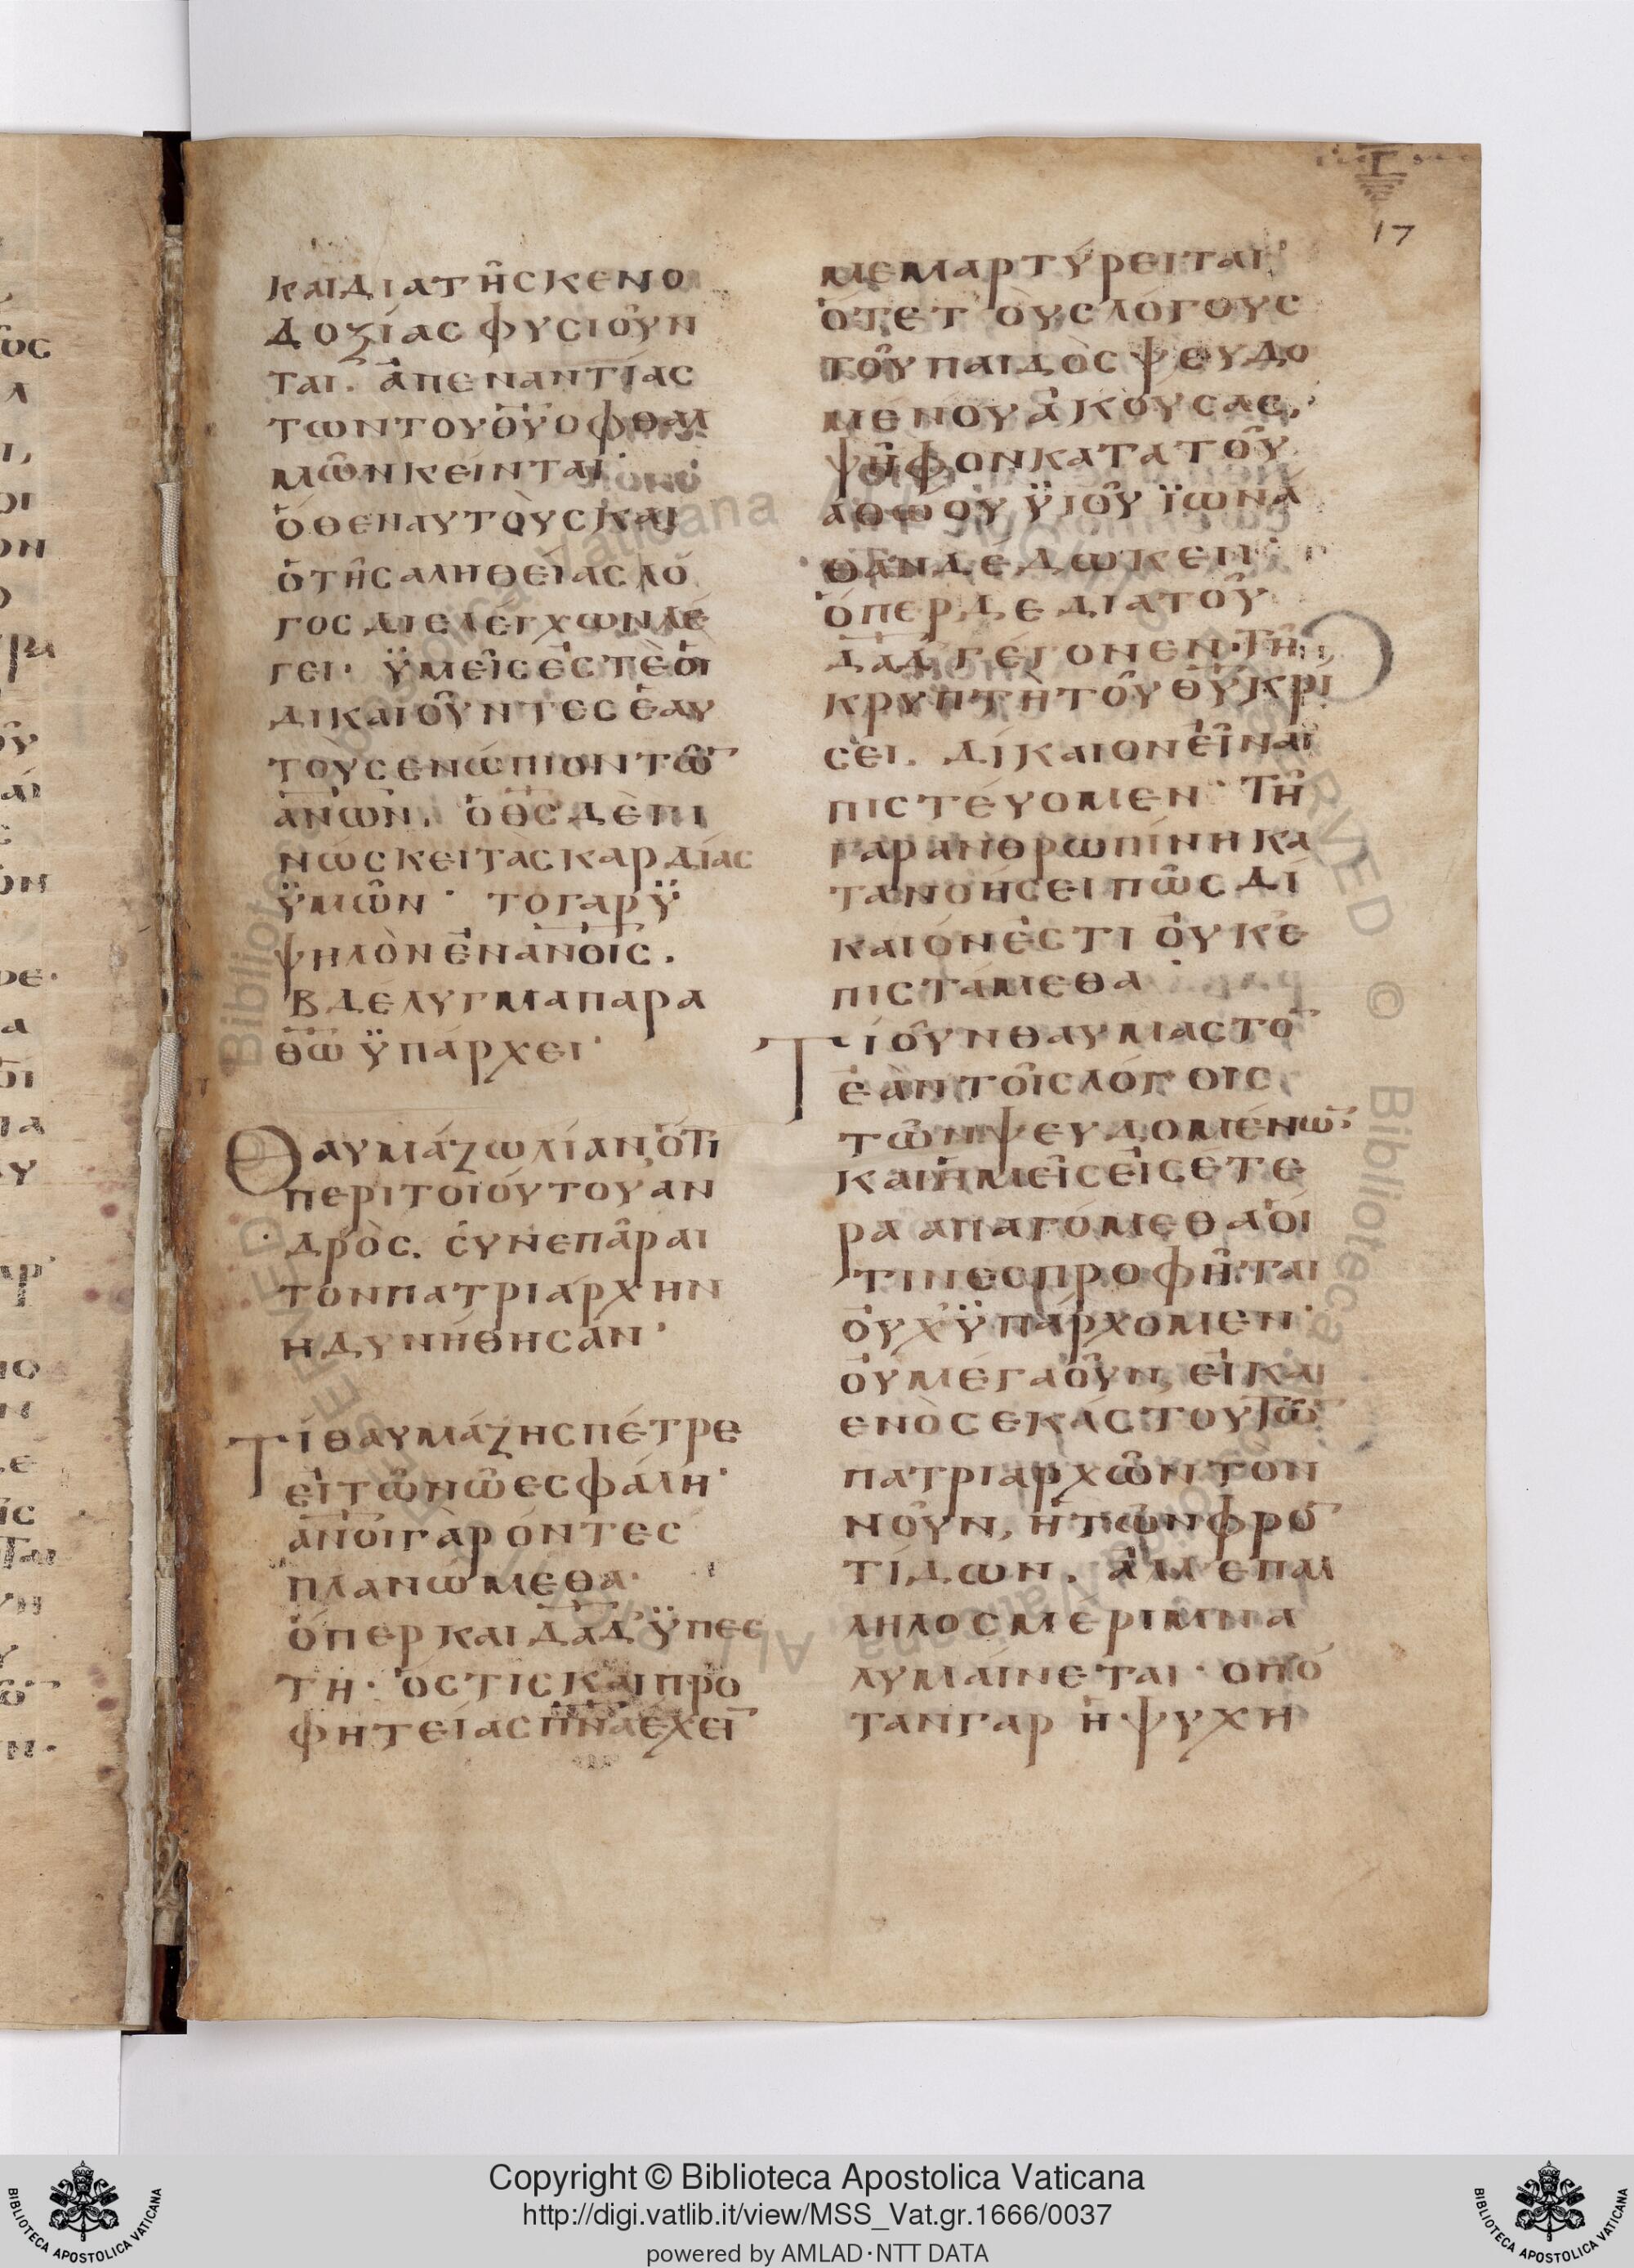 17
ΚΑΙΔΙΑΤΗ͂ϹΚΕΝΟ
ΔΟΞΊΑϹΦΥϹΙΟΥ͂Ν
ΤΑΙ. ἈΠΕΝΑΝΤΊΑϹ
ΤΩΝΤΟΥΘ̅Υ̅ΟΦΘΑΛ
ΜΩ͂ΝΚΕΊΝΤΑΙ·
ὍΘΕΝΑΥΤΟῪϹΚΑΙ
ὉΤΗ͂ϹΑΛΗΘΕΊΑϹΛΌ
ΓΟϹΔΙΕΛΈΓΧΩΝΛΈ
ΓΕΙ· ΫΜΕΙ͂ϹΕϹΤῈὉΙ
ΔΙΚΑΙΟΥ͂ΝΤΕϹἙΑΥ
ΤΟΥϹΕΝΏΠΙΟΝΤΩ͂̅
Α̅Ν̅Ω̅Ν̅. ὉΘ̅Ϲ̅ΔῈΓΙ
ΝΏϹΚΕΙΤᾺϹΚΑΡΔΊΑϹ
ΫΜΩ͂Ν· ΤΟΓΑΡΫ
ΨΗΛῸΝἘΝΑ̅Ν̅Ο̅Ι̅Ϲ̅.
ΒΔΕΛΥΓΜΑΠΑΡΑ
Θ̅Ω̅ΫΠΆΡΧΕΙ·
ΘΑΥΜΆΖΩΛΊΑΝὍΤΙ
ΠΕΡΙΤΟΙΟΎΤΟΥΑΝ
ΔΡῸϹ. ϹΥΝΕΠΑ͂ΡΑΙ
ΤΟΝΠΑΤΡΙΆΡΧΗΝ
ΗΔΥΝΉΘΗϹΑΝ·
ΤΊΘΑΥΜΆΖΗϹΠΈΤΡΕ
ΕἸΤΩ͂ΝΩ͂ΕϹΦΆΛΗ·
Α̅Ν̅Ο̅Ι̅ΓᾺΡΌΝΤΕϹ
ΠΛΑΝΏΜΕΘΑ·
ὍΠΕΡΚΑΙΔ̅Α̅Δ̅ΫΠΕϹ
ΤΗ· ὍϹΤΙϹΚΑΙΠΡΟ
ΦΗΤΕΊΑϹΠ̅Ν̅Α̅ΕΧΕΙ̅
ΜΕΜΑΡΤΎΡΕΙΤΑΙ·
ὍΤΕΤΟῪϹΛΌΓΟΥϹ
ΤΟΥ͂ΠΑΙΔῸϹΨΕΥΔΟ
ΜΈΝΟΥἈΚΟΎϹΑϹ,
ΨΗ͂ΦΟΝΚΑΤΑΤΟΥ͂
ΑΘΏΟΥΫΙΟΥ͂ΪΩΝΑ
ΘΑΝΔΈΔΩΚΕΝ·
ὍΠΕΡΔΕΔΙΑΤΟΥ͂
Δ̅Α̅Δ̅ΓΈΓΟΝΕΝ·ΤΗ͂
ΚΡΥΠΤῊΤΟΥ͂Θ̅Υ̅ΚΡΊ
ϹΕΙ. ΔΊΚΑΙΟΝΕἾΝΑΙ
ΠΙϹΤΈΥΟΜΕΝ· ΤΗ͂
ΓΑΡΑΝΘΡΩΠΊΝΗΚΑ
ΤΑΝΟΉϹΕΙΠΩ͂ϹΔΊ
ΚΑΙΟΝἘϹΤΙΟΥΚΕ
ΠΙϹΤΆΜΕΘΑ·
ΤΊΟΥ͂ΝΘΑΥΜΑϹΤΟ̅
ἘᾺΝΤΟΙ͂ϹΛΌΓΟΙϹ
ΤΩ͂ΝΨΕΥΔΟΜΈΝΩ̅·
ΚΑΙἩΜΕΙ͂ϹΕἸϹΕΤΕ
ΡΑΑΠΑΓΌΜΕΘΑὉΙ
ΤΙΝΕϹΠΡΟΦΗ͂ΤΑΙ
ΟΥΧΫΠΆΡΧΟΜΕΝ·
ΟΥΜΈΓΑΟΥ͂Ν, ΕἸΚΑΙ
ΕΝῸϹΕΚΆϹΤΟΥΤΩ͂̅
ΠΑΤΡΙΑΡΧΩ͂ΝΤΟΝ
ΝΟΥ͂Ν, ἩΤΩ͂ΝΦΡΟ̅
ΤΊΔΩΝ. ἈΛΛΕΠΑΛ
ΛΗΛΟϹΜΕΡΙΜΝΑ
ΛΥΜΑΊΝΕΤΑΙ· ΟΠΌ
ΤΑΝΓΑΡἩΨΥΧΗ
Copyright © Biblioteca Apostolica Vaticana
http://digi.vatlib.it/view/MSS_Vat.gr.1666/0037
powered by AMLAD·NTT DATA
BIBLIOTECA APOSTOLICA VATICANA
BIBLIOTECA APOSTOLICA VATICANA